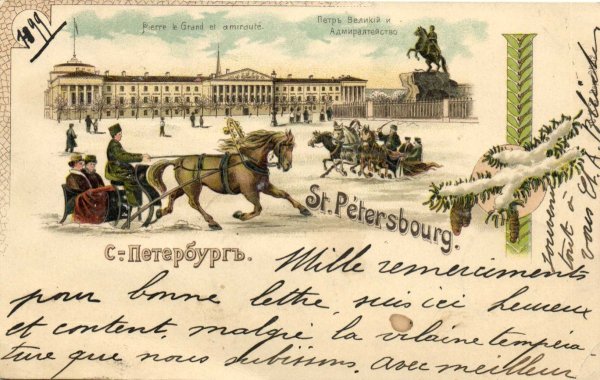 1899
Pierre le Grand et amirauté.
Петръ Великій и
Адмиралтейство
St. Pétersbourg.
С=Петербургъ.
Mille remerciments
pour bonne lettre, suis ici heureux
et content, malgré la vilaine tempéra-
ture que nous subissons. avec meilleur
souvenir
tout à
vous